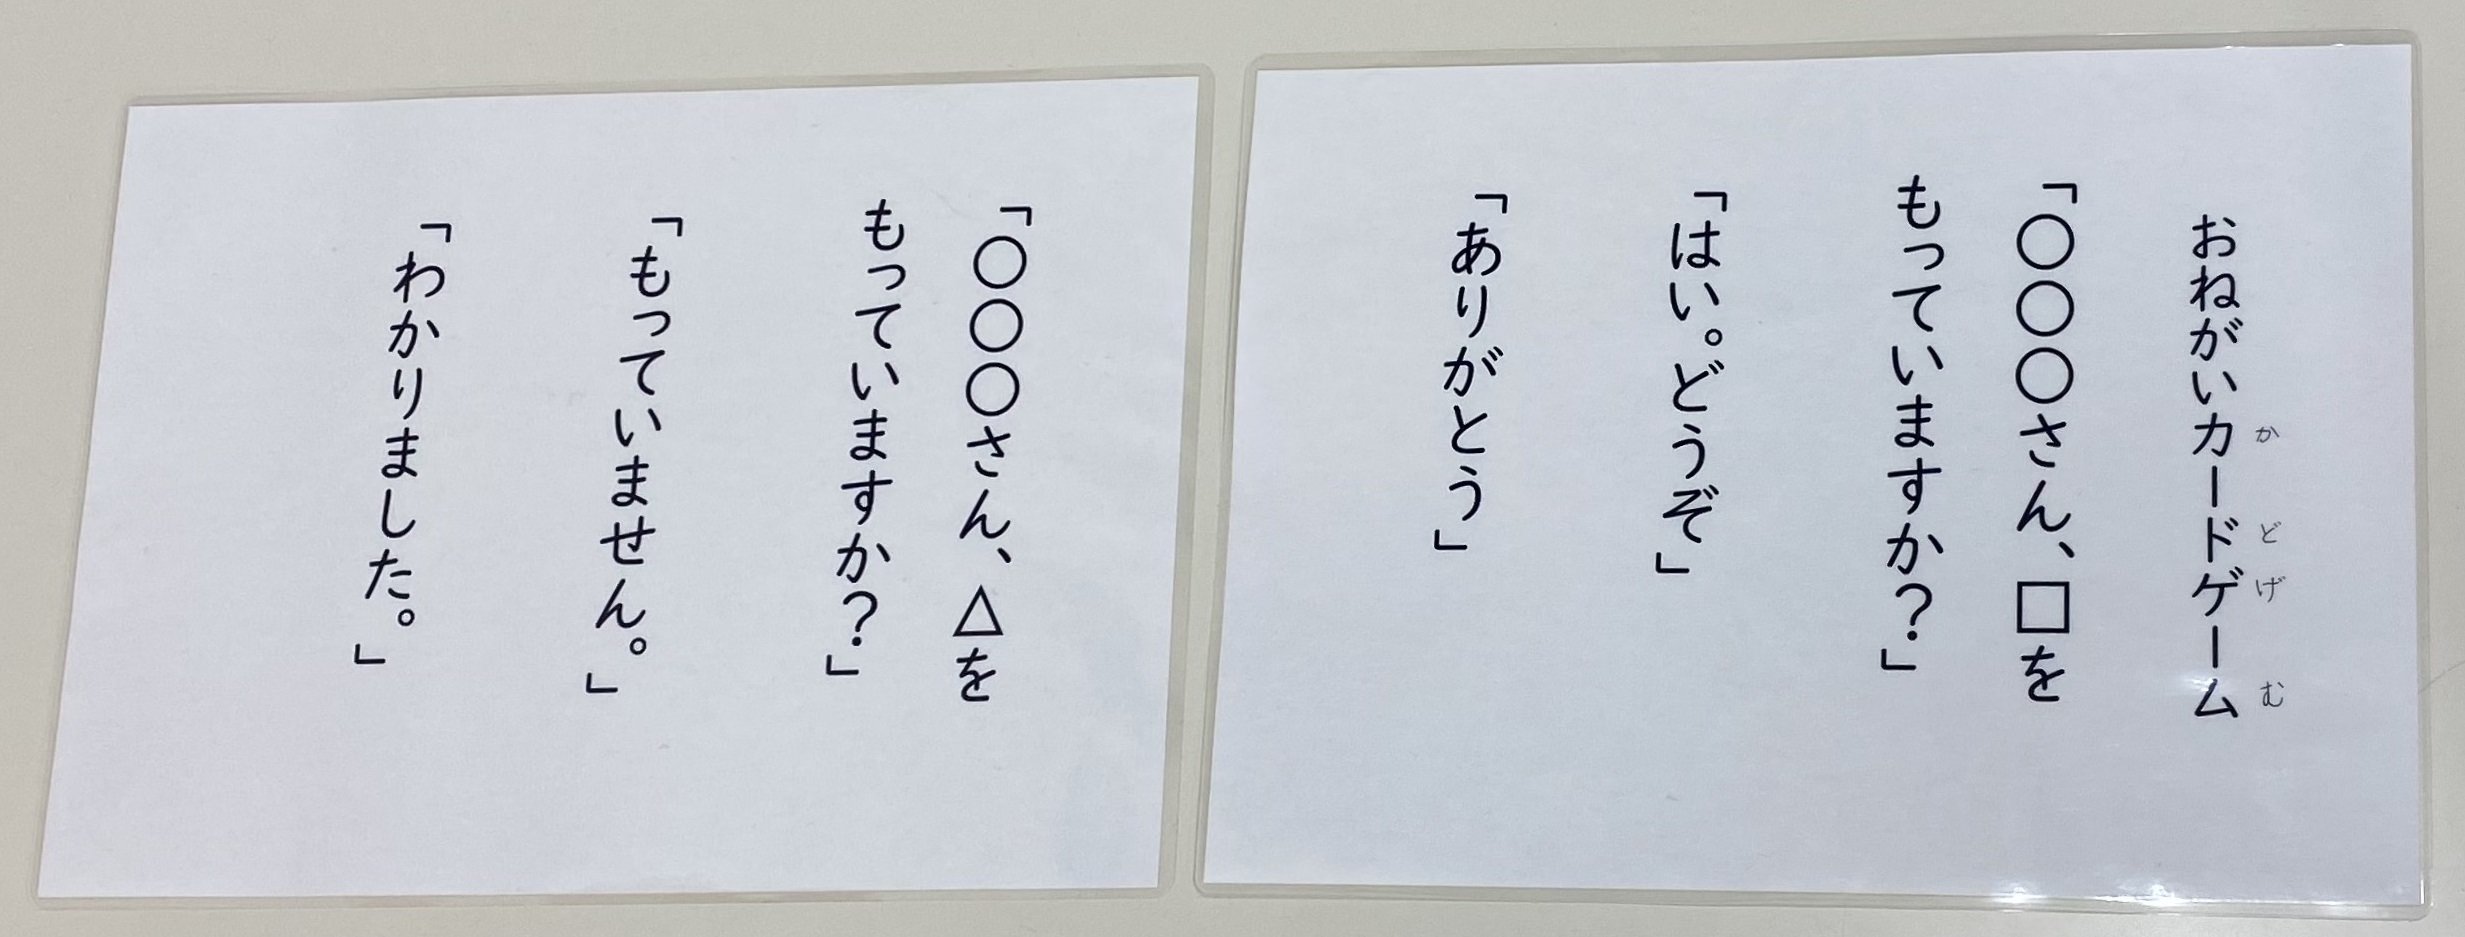 おねがいカードゲーム
か ど げ む
「〇〇〇さん、□を
もっていますか？」
「はい。どうぞ」
「ありがとう」
「〇〇〇さん、△を
もっていますか？」
「もっていません。」
「わかりました。」